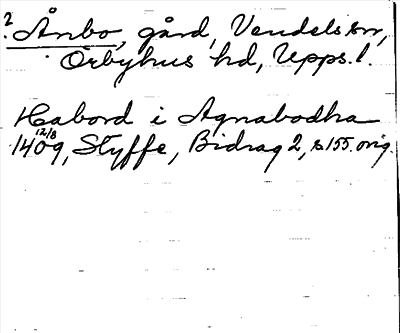 2. Ånbo, gård, Vendels sn,
Örbyhus hd, Upps. l.
Habord i Agnabodha
12/8
1409, Styffe, Bidrag 2, s 155. orig.